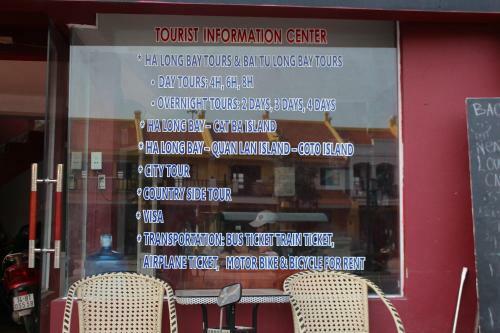 TOURIST INFORMATION CENTER
* HA LONG BAY TOURS & BAI TU LONG BAY TOURS
• DAY TOURS: 4H, 6H, 8H
• OVERNIGHT TOURS: 2 DAYS, 3 DAYS, 4 DAYS
* HA LONG BAY – CAT BA ISLAND
* HA LONG BAY – QUAN LAN ISLAND – COTO ISLAND
* CITY TOUR
* COUNTRY SIDE TOUR
* VISA
* TRANSPORTATION: BUS TICKET TRAIN TICKET,
AIRPLANE TICKET, MOTOR BIKE & BICYCLE FOR RENT